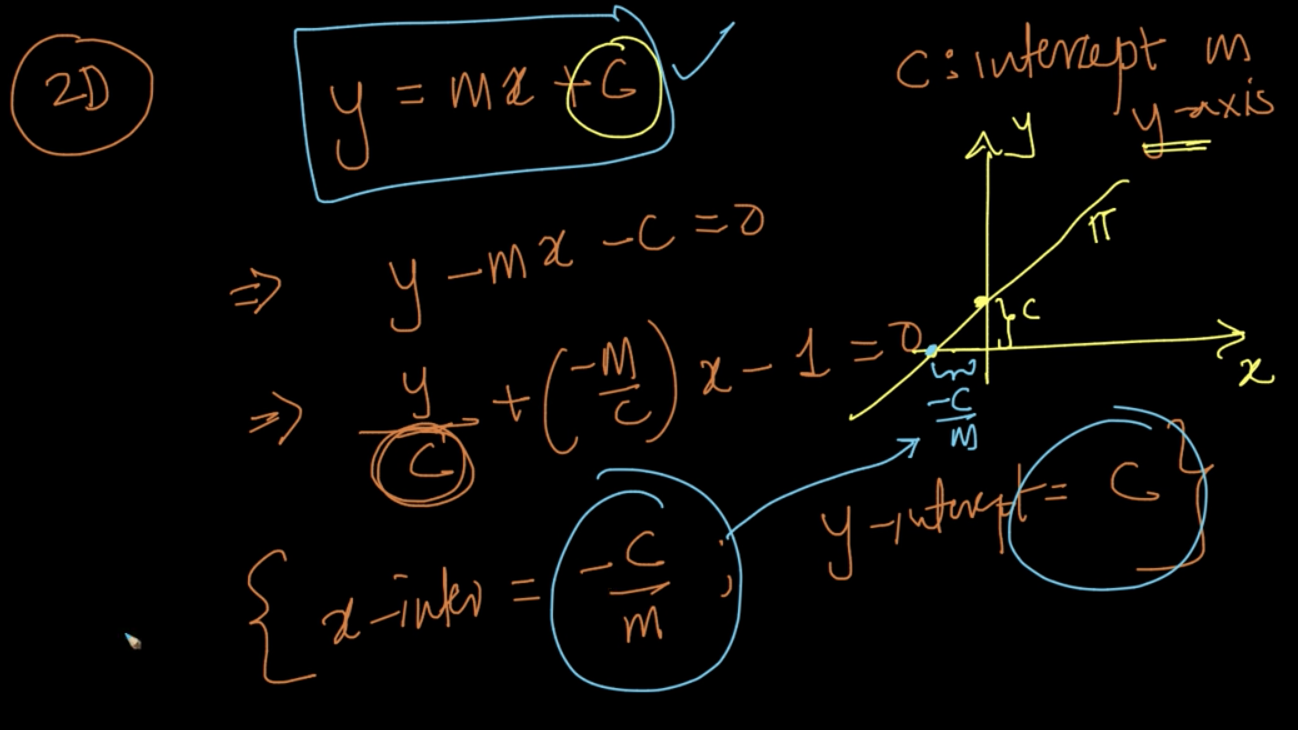 2D
y = mx + C
C: intercept in
y-axis
y
π
⇒ y - mx - C = 0
C
⇒ y/C + (-m/C) x - 1 = 0
x
-C/m
{ x-inter = -C/m ; y-intercept = C }